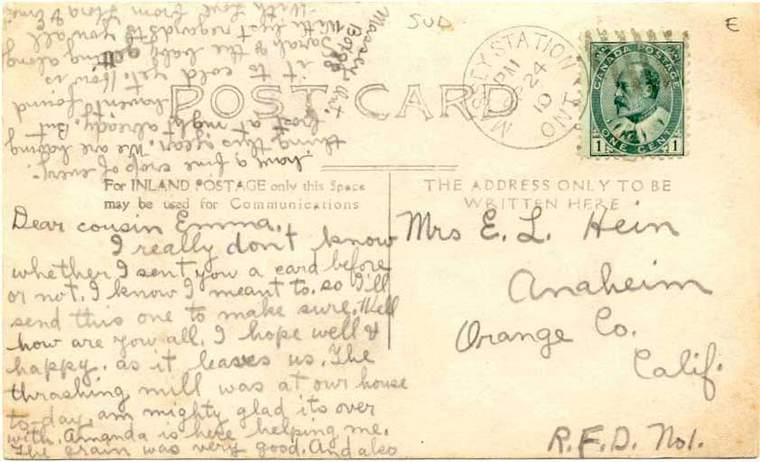 SUD
E
MASSEY STATION
PM
SP 24
10
ONT
CANADA POSTAGE
ONE CENT
1 1
POST CARD
For INLAND POSTAGE only this Space
may be used for Communications
THE ADDRESS ONLY TO BE
WRITTEN HERE
Dear cousin Emma.
I really don't know
whether I sent you a card before
or not. I know I meant to. so I'll
send this one to make sure. Well
how are you all. I hope well &
happy. as it leaves us. The
thrashing mill was at our house
to-day. am mighty glad its over
with. Amanda is here helping me.
The grain was very good. And also
have a fine crop of every-
thing this year. We are having
frost at night already. But
haven't found
it to cold yet. How is
Sarah & the baby getting along
With best regards to you all
With Love from Flora &
Massey
Box 98
Ont.
Mrs E. L. Hein
Anaheim
Orange Co.
Calif.
R.F.D. No1.